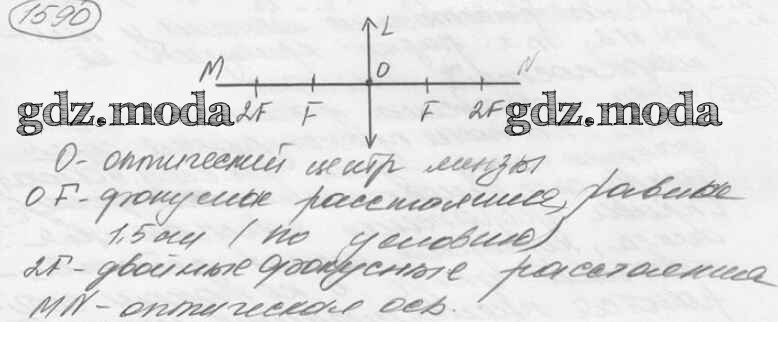 1590
L
M O N
gdz.moda 2F F F 2F gdz.moda
O - оптический центр линзы
OF - фокусные расстояния, равные
1,5 см (по условию)
2F - двойные фокусные расстояния
MN - оптическая ось.